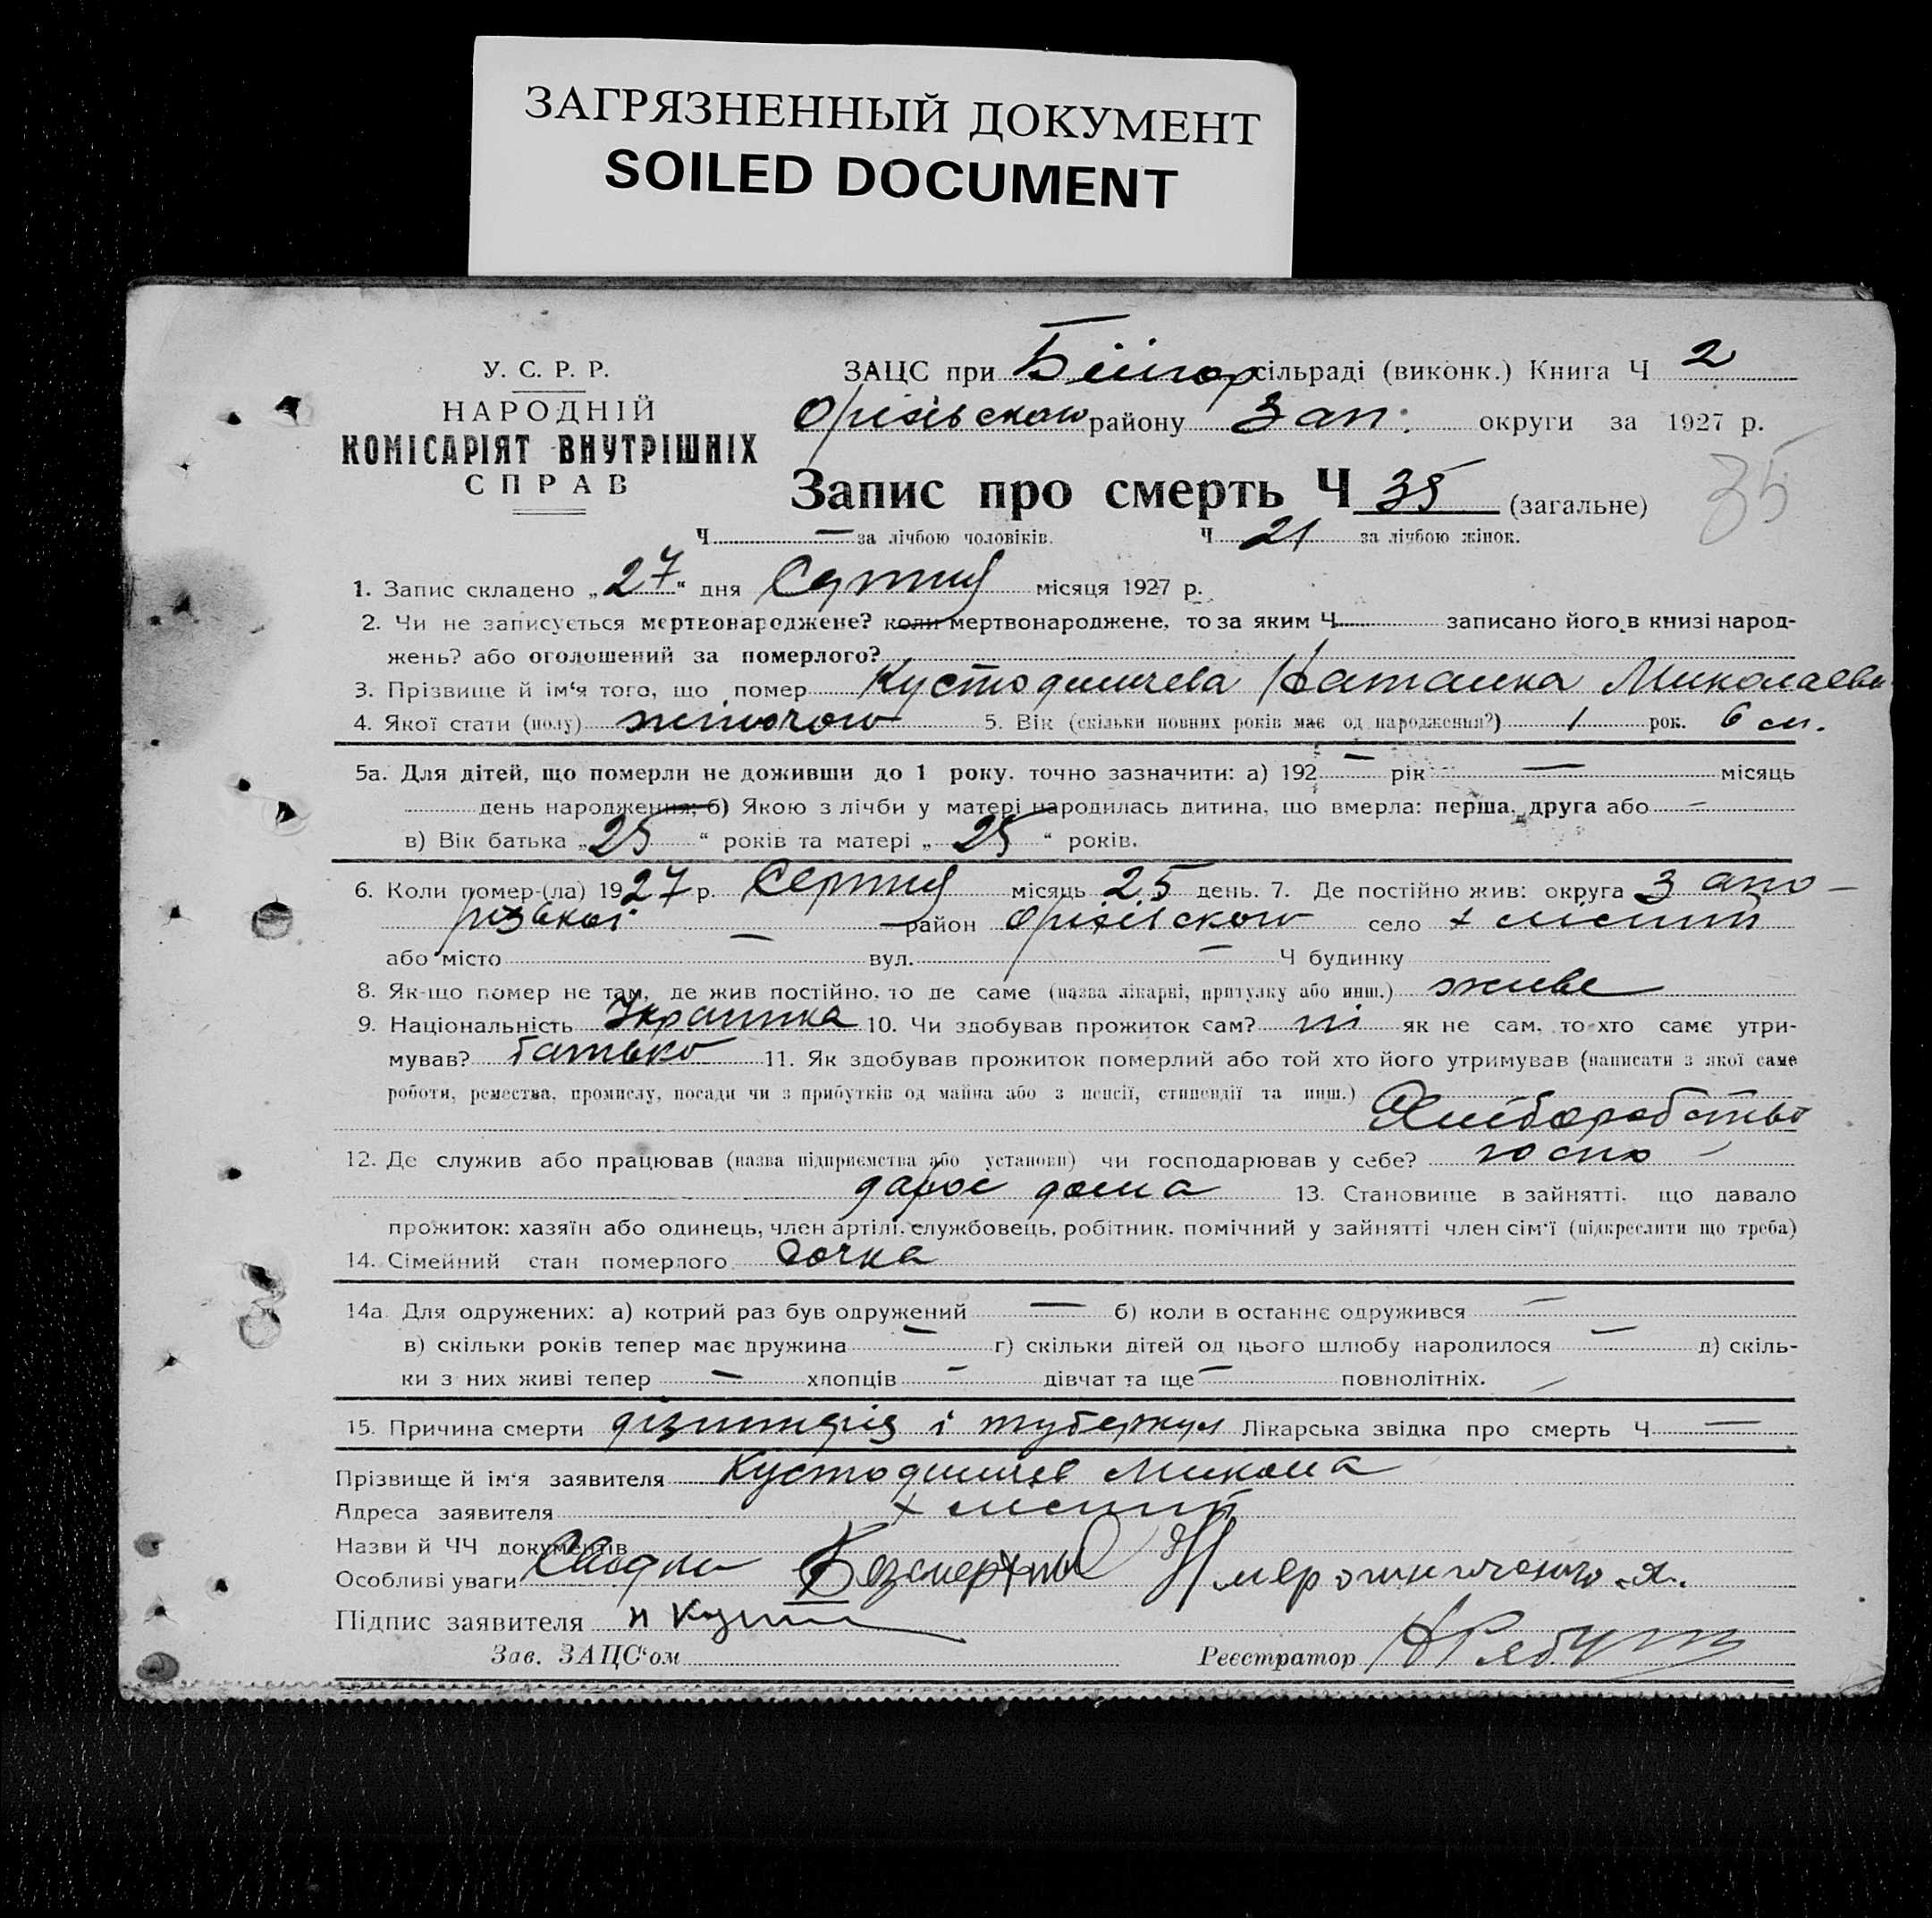 ЗАГРЯЗНЕННЫЙ ДОКУМЕНТ
SOILED DOCUMENT
У. С. Р. Р.
НАРОДНІЙ
КОМІСАРІЯТ ВНУТРІШНІХ
СПРАВ
ЗАЦС при Білгор сільраді (виконк.) Книга Ч 2
Оріхівского району Зап. округи за 1927 р.
Запис про смерть Ч 35 (загальне) 35
Ч — за лічбою чоловіків. Ч 21 за лічбою жінок.
1. Запис складено „27“ дня Серпня місяця 1927 р.
2. Чи не записується мертвонароджене? коли мертвонароджене, то за яким Ч записано його в книзі народ-
жень? або оголошений за померлого?
3. Прізвище й ім'я того, що помер Кустодишчева Наталка Миколаевн
4. Якої стати (полу) жіночою 5. Вік (скільки повних років має од народження?) 1 рок. 6 м.
5а. Для дітей, що померли не доживши до 1 року, точно зазначити: а) 192 — рік — місяць
день народження; б) Якою з лічби у матері народилась дитина, що вмерла: перша, друга або —
в) Вік батька „25“ років та матері „25“ років.
6. Коли помер-(ла) 1927 р. Серпня місяць 25 день. 7. Де постійно жив: округа Запо-
різькой — район Оріхівского село х
або місто — вул. — Ч будинку
8. Як-що помер не там, де жив постійно, то де саме (назва лікарні, притулку або инш.) живе
9. Національність Українка 10. Чи здобував прожиток сам? ні як не сам, то хто саме утри-
мував? батько 11. Як здобував прожиток померлий або той хто його утримував (написати з якої саме
роботи, ремества, промислу, посади чи з прибутків од майна або з пенсії, стипендії та инш.)
Хліборобство
12. Де служив або працював (назва підприємства або установи) чи господарював у себе? госпо
дарює дома 13. Становище в зайнятті, що давало
прожиток: хазяїн або одинець, член артілі, службовець, робітник, помічний у зайнятті член сім'ї (підкреслити що треба)
14. Сімейний стан померлого дочка
14а. Для одружених: а) котрий раз був одружений — б) коли в останнє одружився —
в) скільки років тепер має дружина — г) скільки дітей од цього шлюбу народилося — д) скіль-
ки з них живі тепер — хлопців — дівчат та ще — повнолітніх.
15. Причина смерти дізинтерія і туберкул Лікарська звідка про смерть Ч —
Прізвище й ім'я заявителя Кустодишчев Микола
Адреса заявителя х
Назви й ЧЧ документів
Особливі уваги Свідки
Підпис заявителя
Зав. ЗАЦС'ом Реєстратор